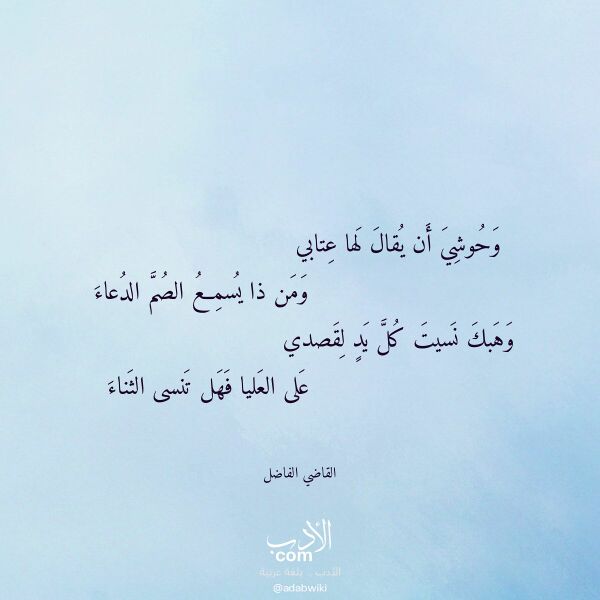 وَحُوشِيَ أَن يُقالَ لَها عِتابي
وَمَن ذا يُسمِعُ الصُمَّ الدُعاءَ
وَهَبكَ نَسيتَ كُلَّ يَدٍ لِقَصدي
عَلى العَليا فَهَل تَنسى الثَناءَ
القاضي الفاضل
الأدب
com
الأدب .. بلغة عربية
@adabwiki